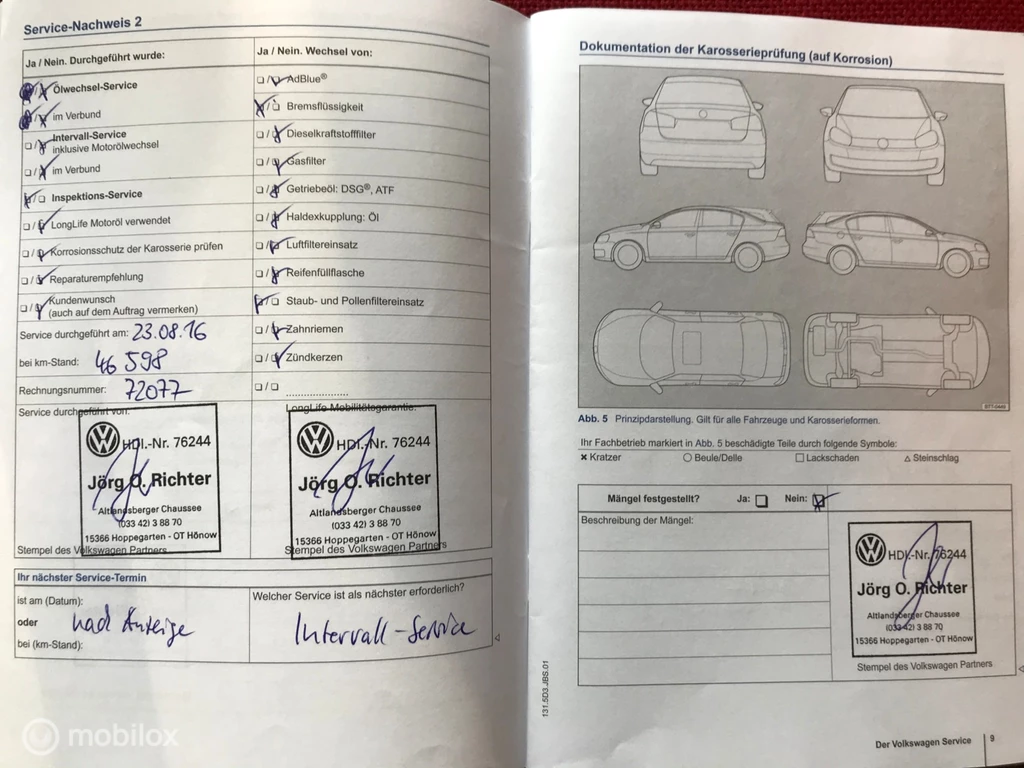 Service-Nachweis 2
Ja / Nein. Durchgeführt wurde:
Ölwechsel-Service
im Verbund
Intervall-Service
inklusive Motorölwechsel
im Verbund
Inspektions-Service
LongLife Motoröl verwendet
Korrosionsschutz der Karosserie prüfen
Reparaturempfehlung
Kundenwunsch
(auch auf dem Auftrag vermerken)
Service durchgeführt am: 23.08.16
bei km-Stand: 46 598
Rechnungsnummer: 72077
Service durchgeführt von:
HDl.-Nr. 76244
Jörg O. Richter
Altlandsberger Chaussee
(033 42) 3 88 70
15366 Hoppegarten - OT Hönow
Stempel des Volkswagen Partners
Ja / Nein. Wechsel von:
AdBlue®
Bremsflüssigkeit
Dieselkraftstofffilter
Gasfilter
Getriebeöl: DSG®, ATF
Haldexkupplung: Öl
Luftfiltereinsatz
Reifenfüllflasche
Staub- und Pollenfiltereinsatz
Zahnriemen
Zündkerzen
LongLife Mobilitätsgarantie:
HDl.-Nr. 76244
Jörg O. Richter
Altlandsberger Chaussee
(033 42) 3 88 70
15366 Hoppegarten - OT Hönow
Stempel des Volkswagen Partners
Ihr nächster Service-Termin
ist am (Datum):
oder nach Anzeige
bei (km-Stand):
Welcher Service ist als nächster erforderlich?
Intervall-Service
Dokumentation der Karosserieprüfung (auf Korrosion)
B7T-0449
Abb. 5 Prinzipdarstellung. Gilt für alle Fahrzeuge und Karosserieformen.
Ihr Fachbetrieb markiert in Abb. 5 beschädigte Teile durch folgende Symbole:
Kratzer Beule/Delle Lackschaden Steinschlag
Mängel festgestellt? Ja: Nein:
Beschreibung der Mängel:
HDl.-Nr. 76244
Jörg O. Richter
Altlandsberger Chaussee
(033 42) 3 88 70
15366 Hoppegarten - OT Hönow
Stempel des Volkswagen Partners
131.5D3.JBS.01
Der Volkswagen Service 9
mobilox